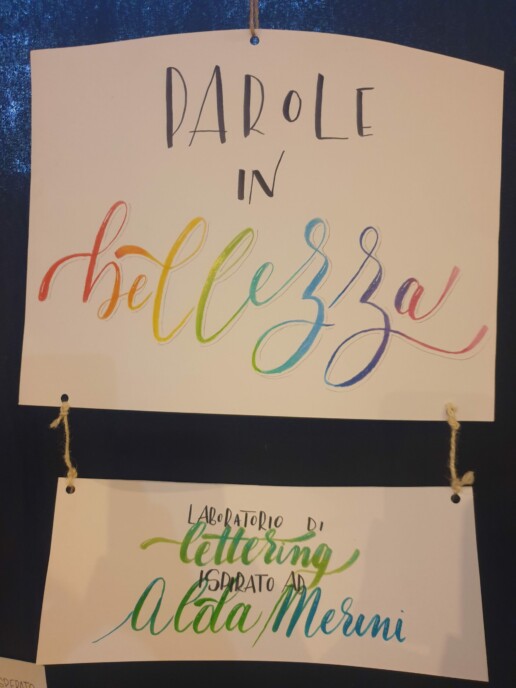 PAROLE
IN
bellezza
LABORATORIO DI
lettering
ISPIRATO AD
Alda Merini